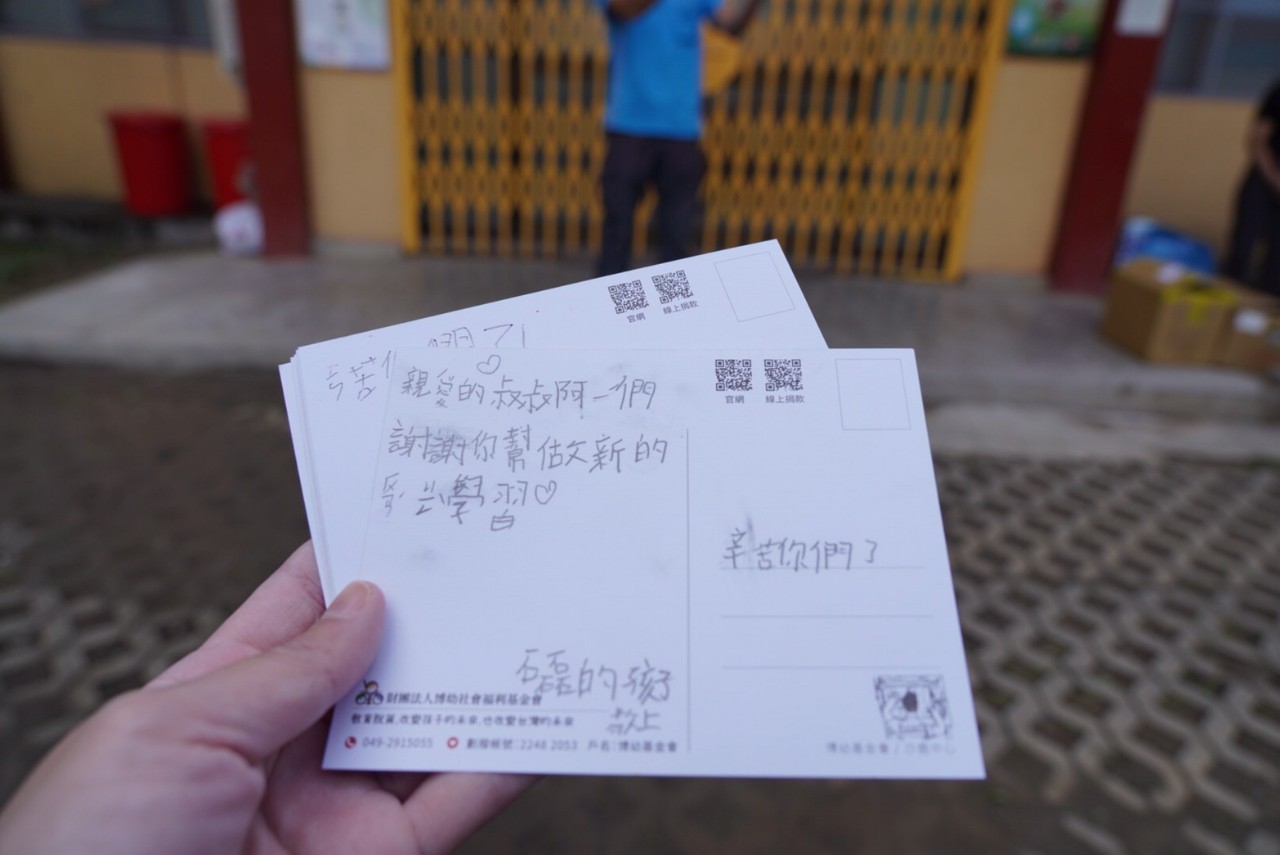 辛苦
親愛的叔叔阿一們
謝謝你幫估文新的
學習♡
磊的孩子
敬上
官網
線上捐款
官網
線上捐款
辛苦你們了
財團法人博幼社會福利基金會
教育脫貧,改變孩子的未來,也改變台灣的未來
049-2915055 劃撥帳號:2248 2053 戶名:博幼基金會
博幼基金會